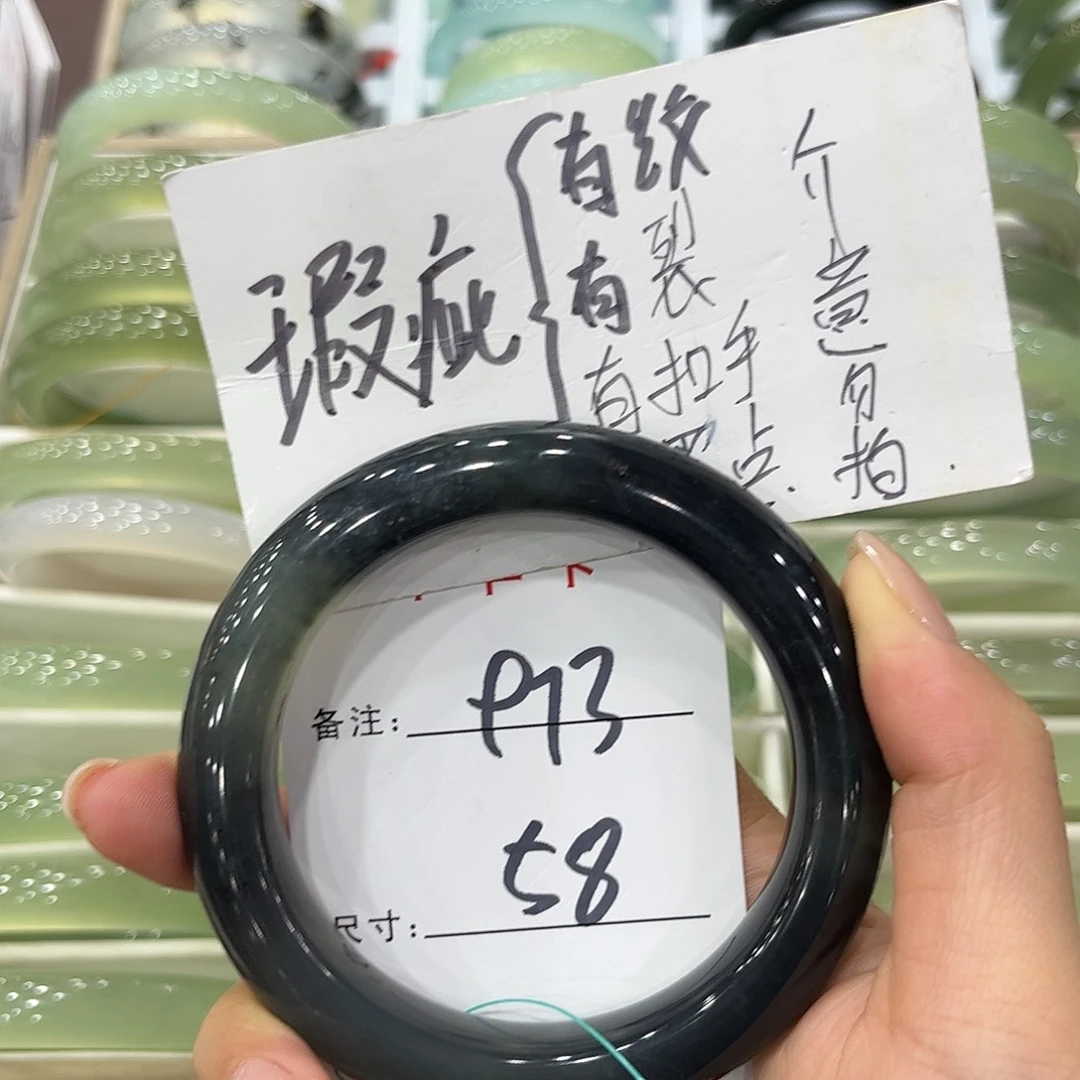 瑕疵
有纹
有裂
有扣手
点.
介意勿拍.
备注: 973
尺寸: 58